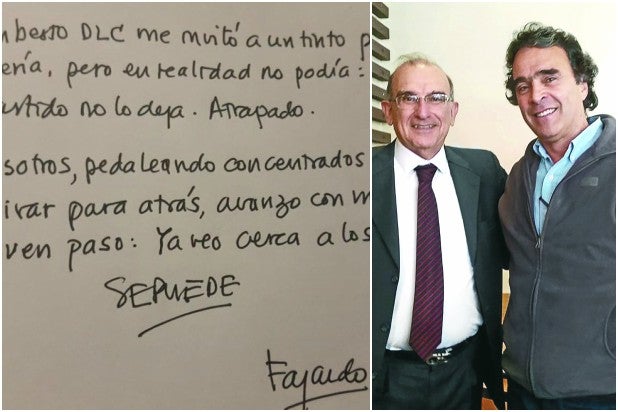 mberto DLC me invitó a un tinto p
ería, pero en realidad no podía:
artido no lo deja. Atrapado.
sotros, pedaleando concentrados
irar para atrás, avanzo con m
y ven paso: Ya veo cerca a los
SE PUEDE
Fajardo